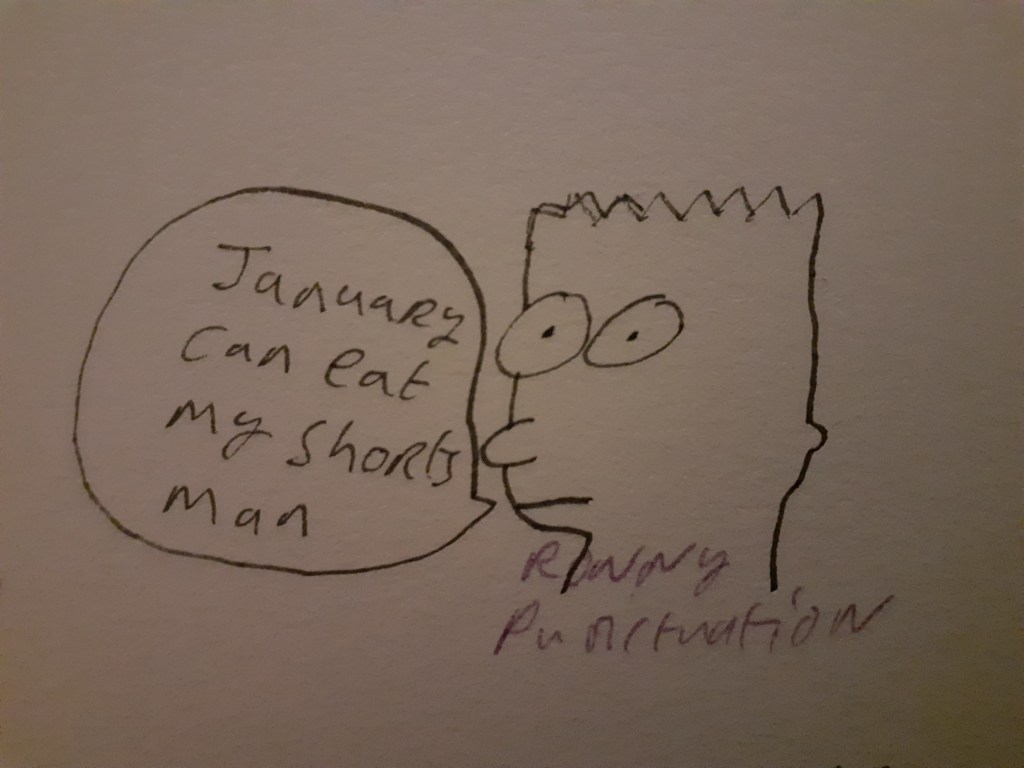 January
can eat
my shorts
man
Ronny
Punctuation